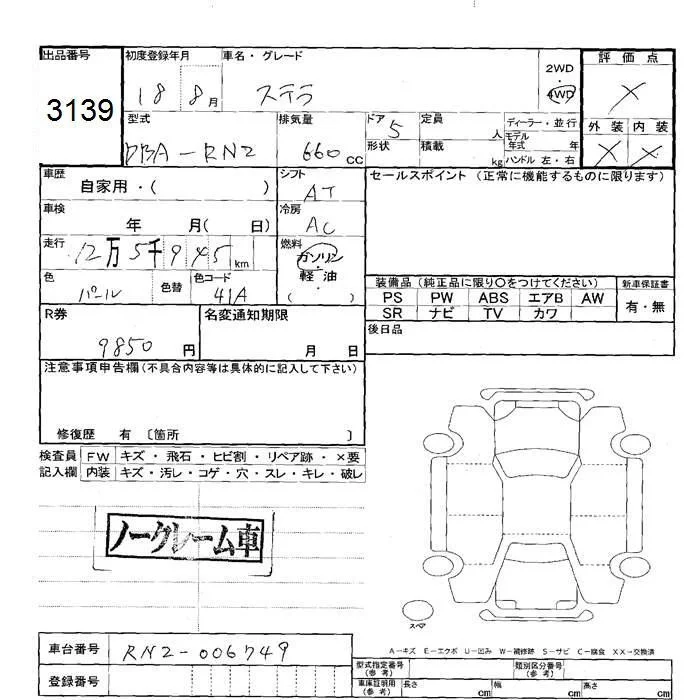 出品番号 初度登録年月 車名・グレード 評価点
3139 18 8月 ステラ 2WD 4WD ×
型式 排気量 ドア 定員 ディーラー・並行 外装 内装
DBA-RN2 660cc 5 人 モデル年式 年 × ×
形状 積載 kg ハンドル 左・右
車歴 自家用・( ) シフト AT セールスポイント (正常に機能するものに限ります)
車検 年 月( 日) 冷房 AC
走行 12万5千945km 燃料 ガソリン
軽・油
( )
色 パール 色替 色コード 41A
装備品(純正品に限り○をつけてください) 新車保証書
PS PW ABS エアB AW 有・無
SR ナビ TV カワ
R券 9850円 名変通知期限 月 日 後日品
注意事項申告欄(不具合内容等は具体的に記入して下さい)
修復歴 有 〔箇所 〕
検査員 FW キズ・飛石・ヒビ割・リペア跡・×要
記入欄 内装 キズ・汚レ・コゲ・穴・スレ・キレ・破レ
ノークレーム車
スペア
A-キズ E-エクボ U-凹み W-補修跡 S-サビ C-腐食 XX-交換済
車台番号 RN2-006749
型式指定番号(参考) 類別区分番号(参考)
登録番号
車庫証明用(参考) 長さ cm 幅 cm 高さ cm